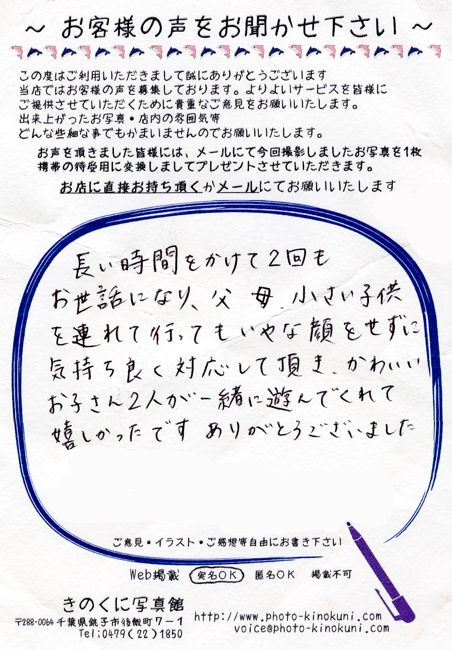 ～ お客様の声をお聞かせ下さい ～
この度はご利用いただきまして誠にありがとうございます
当店ではお客様の声を募集しております。よりよいサービスを皆様に
ご提供させていただくために貴重なご意見をお願いいたします。
出来上がったお写真・店内の雰囲気等
どんな些細な事でもかまいませんのでお願いいたします。
お声を頂きました皆様には、メールにて今回撮影しましたお写真を1枚
携帯の待受用に変換しましてプレゼントさせていただきます。
お店に直接お持ち頂くかメールにてお願いいたします
長い時間をかけて2回も
お世話になり、父 母、小さい子供
を連れて行ってもいやな顔をせずに
気持ち良く対応して頂き、かわいい
お子さん2人が一緒に遊んでくれて
嬉しかったです ありがとうございました
ご意見・イラスト・ご感想等自由にお書き下さい
Web掲載 実名OK 匿名OK 掲載不可
きのくに写真館
〒288-0064 千葉県銚子市 町7-1
Tel:0479(22)1850
http://www.photo-kinokuni.com/
voice@photo-kinokuni.com